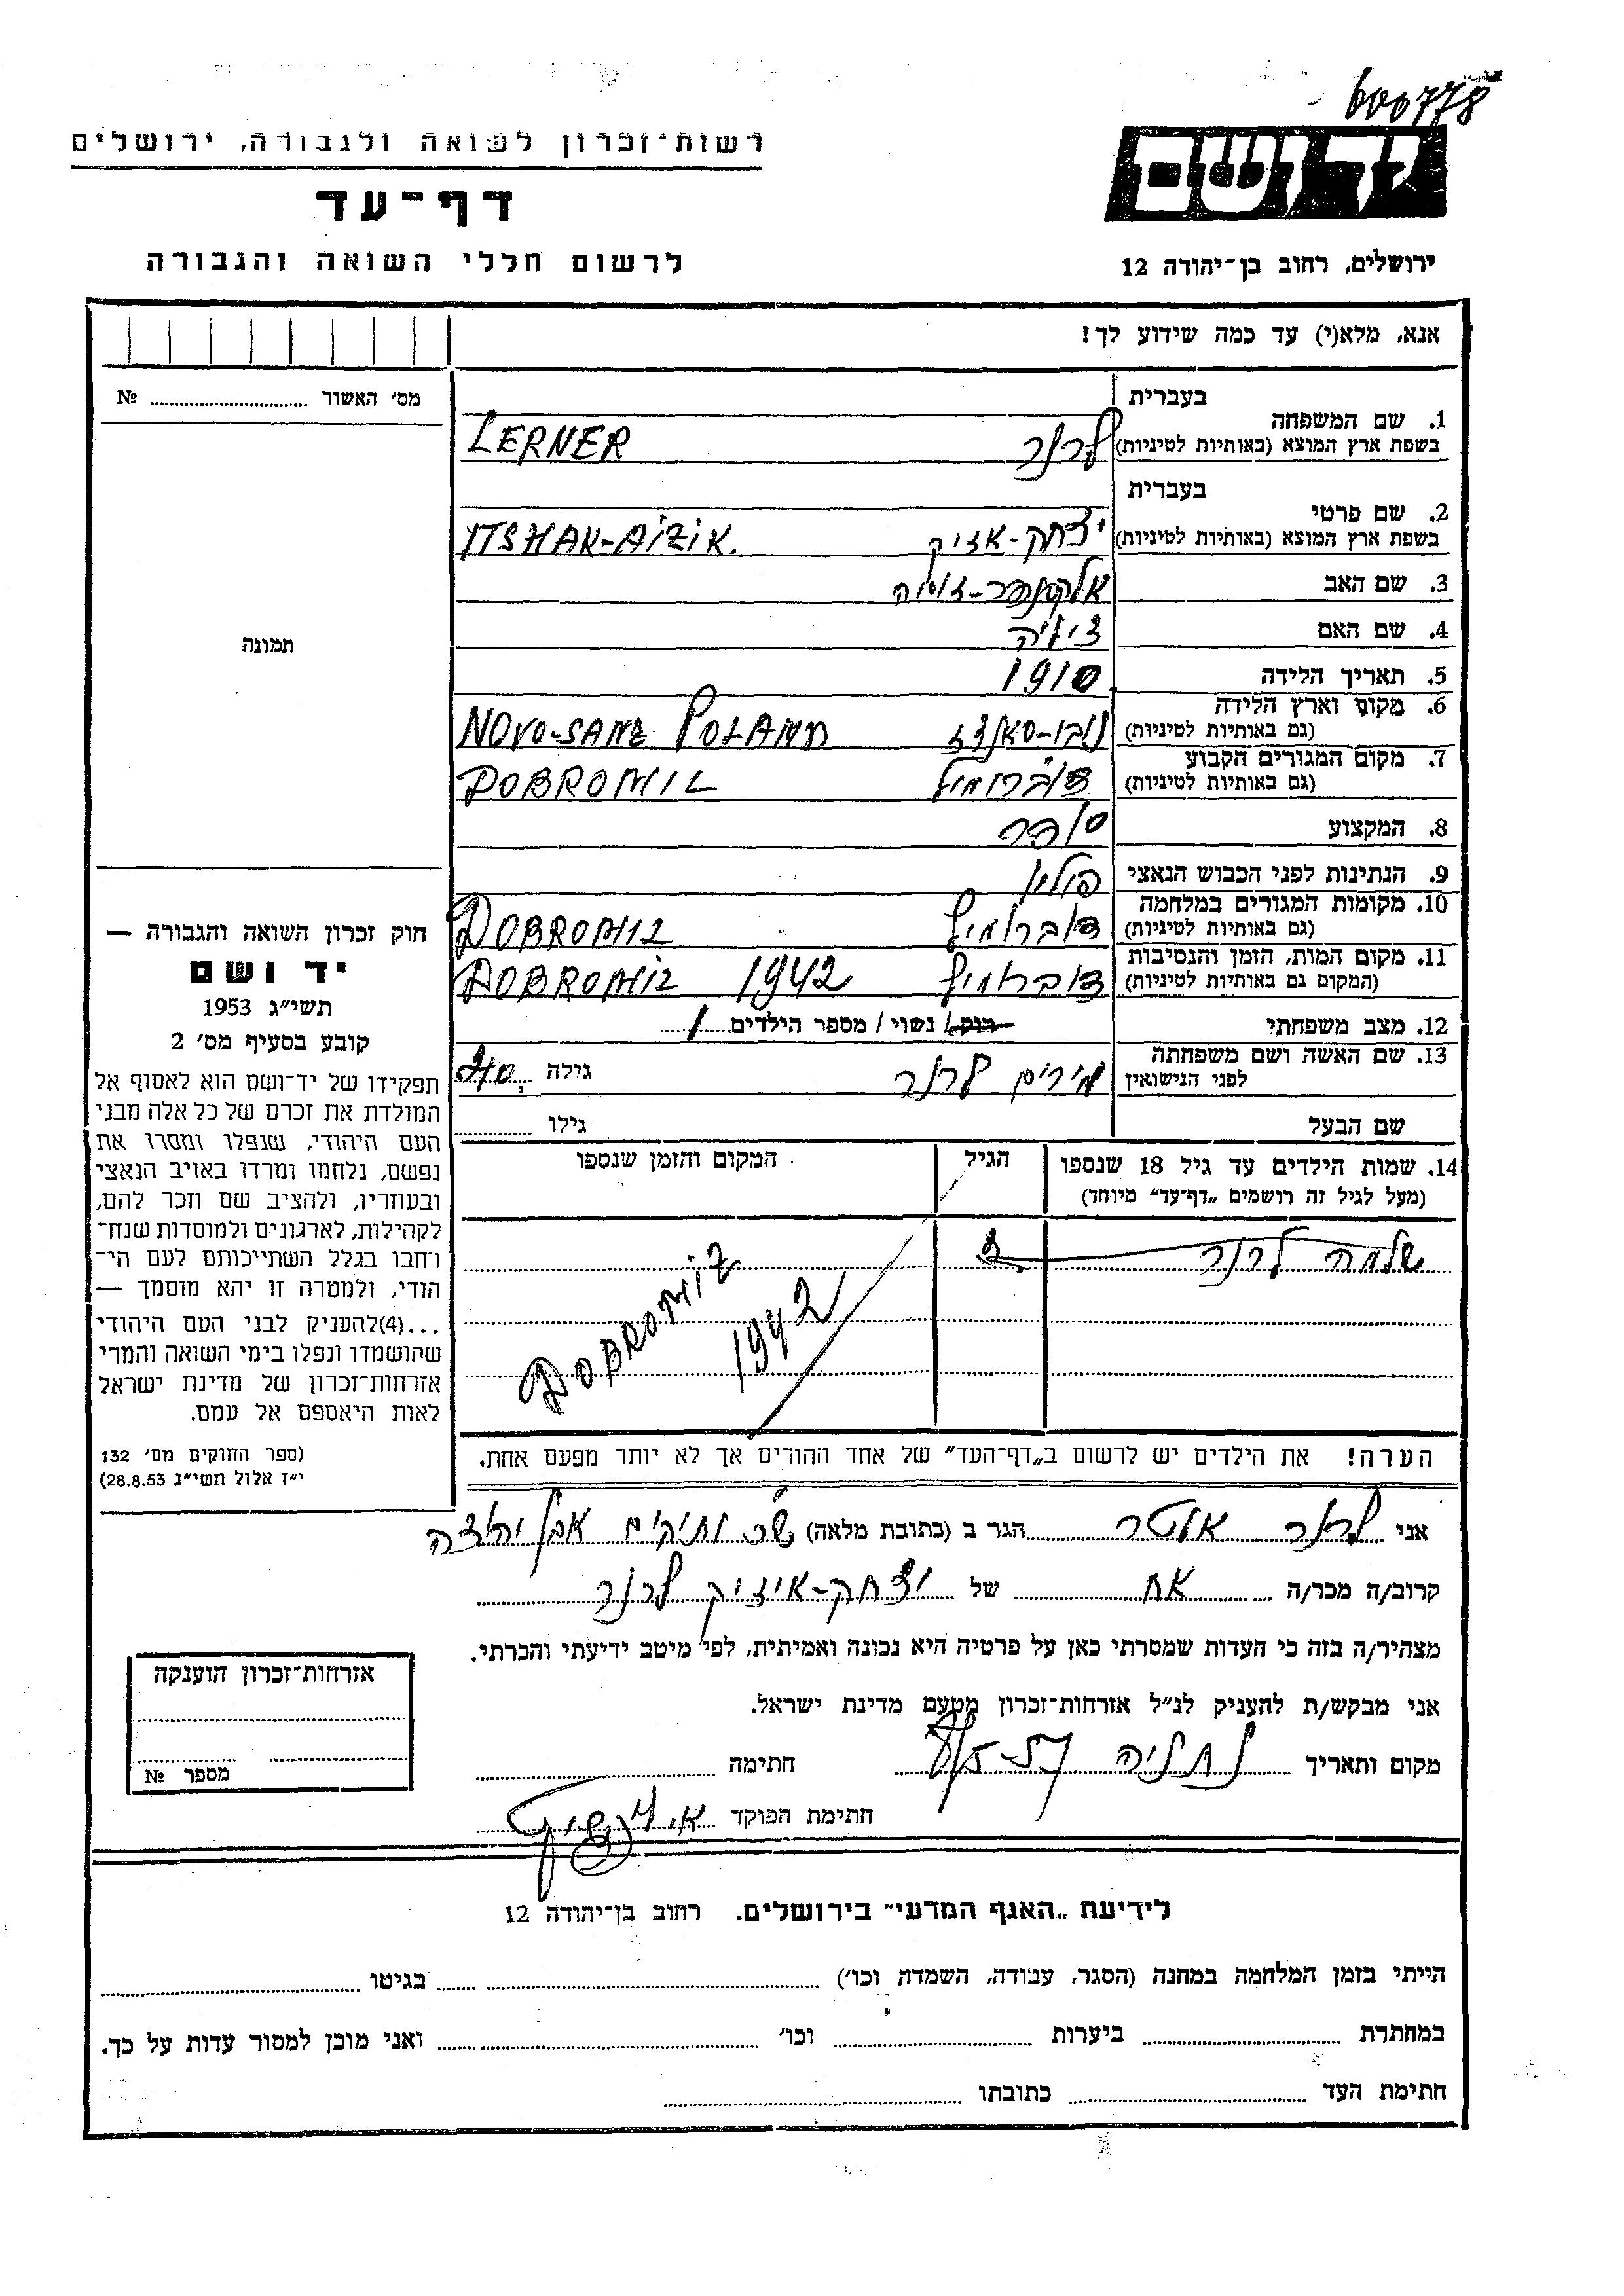 600778
רשות־זכרון לשואה ולגבורה, ירושלים
יד ושם
דף־עד
לרשום חללי השואה והגבורה
ירושלים, רחוב בן־יהודה 12
אנא, מלא(י) עד כמה שידוע לך!
מס׳ האשור ........ №
תמונה
חוק זכרון השואה והגבורה —
יד ושם
תשי״ג 1953
קובע בסעיף מס׳ 2
תפקידו של יד־ושם הוא לאסוף אל
המולדת את זכרם של כל אלה מבני
העם היהודי, שנפלו ומסרו את
נפשם, נלחמו ומרדו באויב הנאצי
ובעוזריו, ולהציב שם וזכר להם,
לקהילות, לארגונים ולמוסדות שנח־
רחבו בגלל השתייכותם לעם הי־
הודי, ולמטרה זו יהא מוסמך —
...(4)להעניק לבני העם היהודי
שהושמדו ונפלו בימי השואה והמרי
אזרחות־זכרון של מדינת ישראל
לאות היאספם אל עמם.
(ספר החוקים מס׳ 132
י״ז אלול תשי״ג 28.8.53)
בעברית
1. שם המשפחה
בשפת ארץ המוצא (באותיות לטיניות) לרנר LERNER
בעברית
2. שם פרטי
בשפת ארץ המוצא (באותיות לטיניות) יצחק-אזיק ITSHAK-AIZIK.
3. שם האב אלכסנדר-
4. שם האם
5. תאריך הלידה 1910
6. מקום וארץ הלידה
(גם באותיות לטיניות) נובו-סאנדז NOVO-SANZ POLAND
7. מקום המגורים הקבוע
(גם באותיות לטיניות) דוברומיל DOBROMIL
8. המקצוע סוחר
9. הנתינות לפני הכבוש הנאצי פולין
10. מקומות המגורים במלחמה
(גם באותיות לטיניות) דוברומיל DOBROMIL
11. מקום המות, הזמן והנסיבות
(המקום גם באותיות לטיניות) דוברומיל DOBROMIL 1942
12. מצב משפחתי רוק/ נשוי / מספר הילדים 1
13. שם האשה ושם משפחתה
לפני הנישואין מרים לרנר גילה 30
שם הבעל גילו
14. שמות הילדים עד גיל 18 שנספו הגיל המקום והזמן שנספו
(מעל לגיל זה רושמים „דף־עד״ מיוחד)
שלמה לרנר DOBROMIL
1942
הערה! את הילדים יש לרשום ב„דף־העד״ של אחד ההורים אך לא יותר מפעם אחת.
אני לרנר אלטר הגר ב (כתובת מלאה) שכ ותיקים אבן יהודה
קרוב/ה מכר/ה אח של יצחק-איזיק לרנר
מצהיר/ה בזה כי העדות שמסרתי כאן על פרטיה היא נכונה ואמיתית, לפי מיטב ידיעתי והכרתי.
אני מבקש/ת להעניק לנ״ל אזרחות־זכרון מטעם מדינת ישראל.
מקום ותאריך נתניה חתימה
חתימת הפוקד
אזרחות־זכרון הוענקה
מספר №
לידיעת „האגף המדעי״ בירושלים. רחוב בן־יהודה 12
הייתי בזמן המלחמה במחנה (הסגר, עבודה, השמדה וכו׳) בגיטו
במחתרת ביערות וכו׳ ואני מוכן למסור עדות על כך.
חתימת העד כתובתו